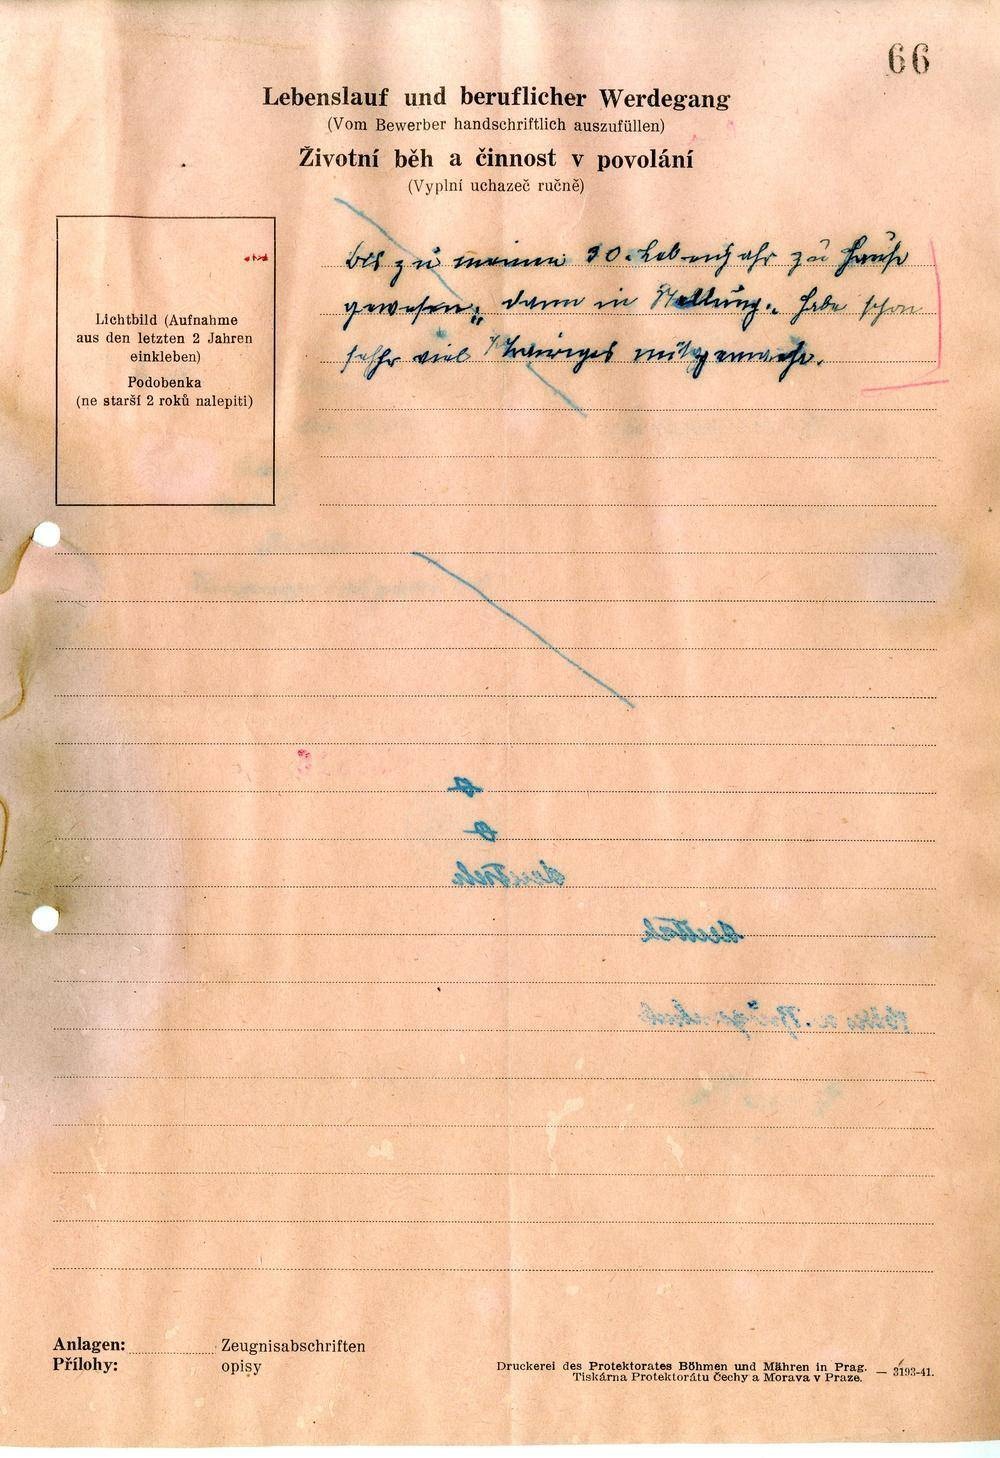 66
Lebenslauf und beruflicher Werdegang
(Vom Bewerber handschriftlich auszufüllen)
Životní běh a činnost v povolání
(Vyplní uchazeč ručně)
Lichtbild (Aufnahme
aus den letzten 2 Jahren
einkleben)
Podobenka
(ne starší 2 roků nalepiti)
bis zu meinen 30. Lebensjahr zu Hause
gewesen; dann in Stellung. Habe schon
sehr viel Trauriges mitgemacht.
Anlagen: Zeugnisabschriften
Přílohy: opisy
Druckerei des Protektorates Böhmen und Mähren in Prag. — 3193-41.
Tiskárna Protektorátu Čechy a Morava v Praze.